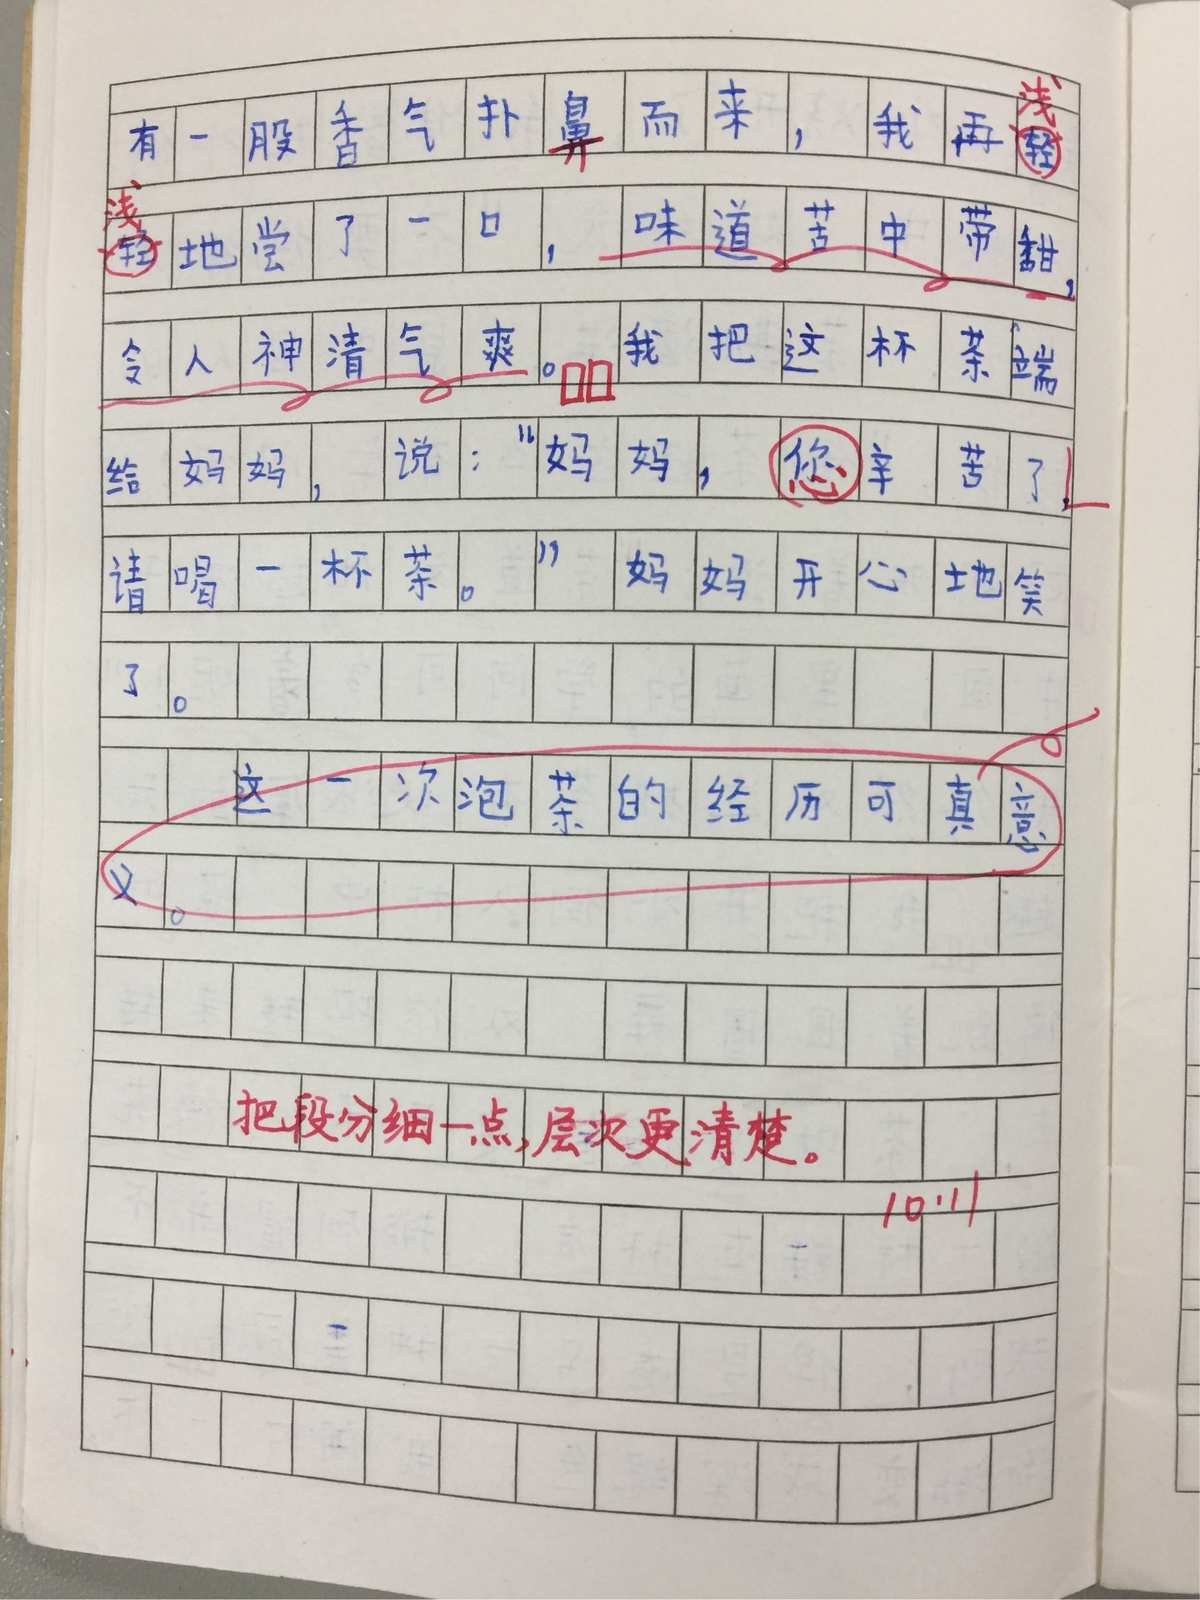 浅
有一股香气扑鼻而来，我再轻
浅
轻地尝了一口，味道苦中带甜，
令人神清气爽。我把这杯茶端
给妈妈，说：“妈妈，您辛苦了，
请喝一杯茶。”妈妈开心地笑
了。
这一次泡茶的经历可真意
义。
把段分细一点，层次更清楚。
10.11